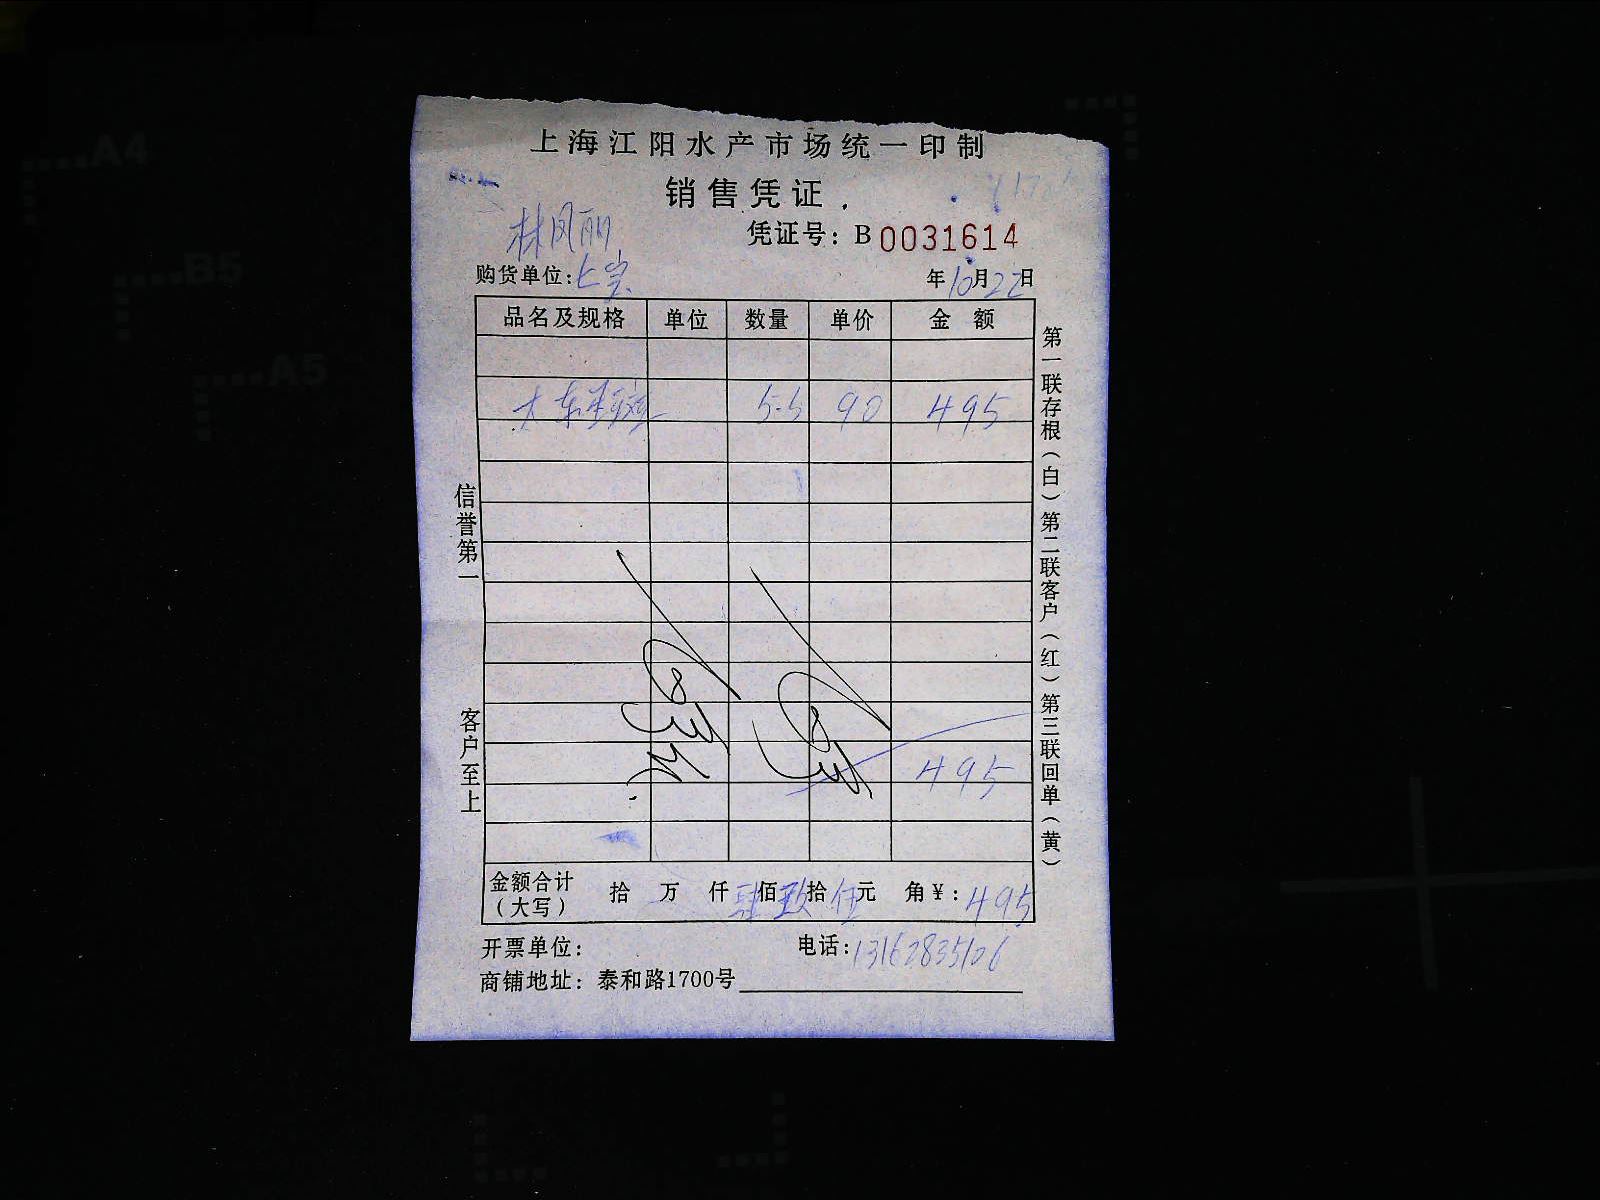 上海江阳水产市场统一印制
销售凭证
林凤丽
凭证号：B 0031614
购货单位：上宝
年10月22日
品名及规格 单位 数量 单价 金额
大东 5.5 90 495
495
金额合计（大写） 拾 万 仟 肆佰玖拾伍元 角￥：495
开票单位： 电话：13162835126
商铺地址：泰和路1700号
信誉第一 客户至上
第一联存根（白）第二联客户（红）第三联回单（黄）
A4
B5
A5